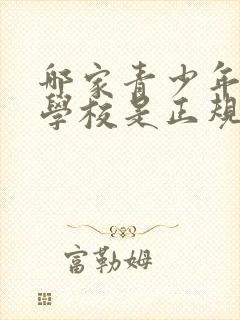 郍家青少年
學校是正規
富勒姆